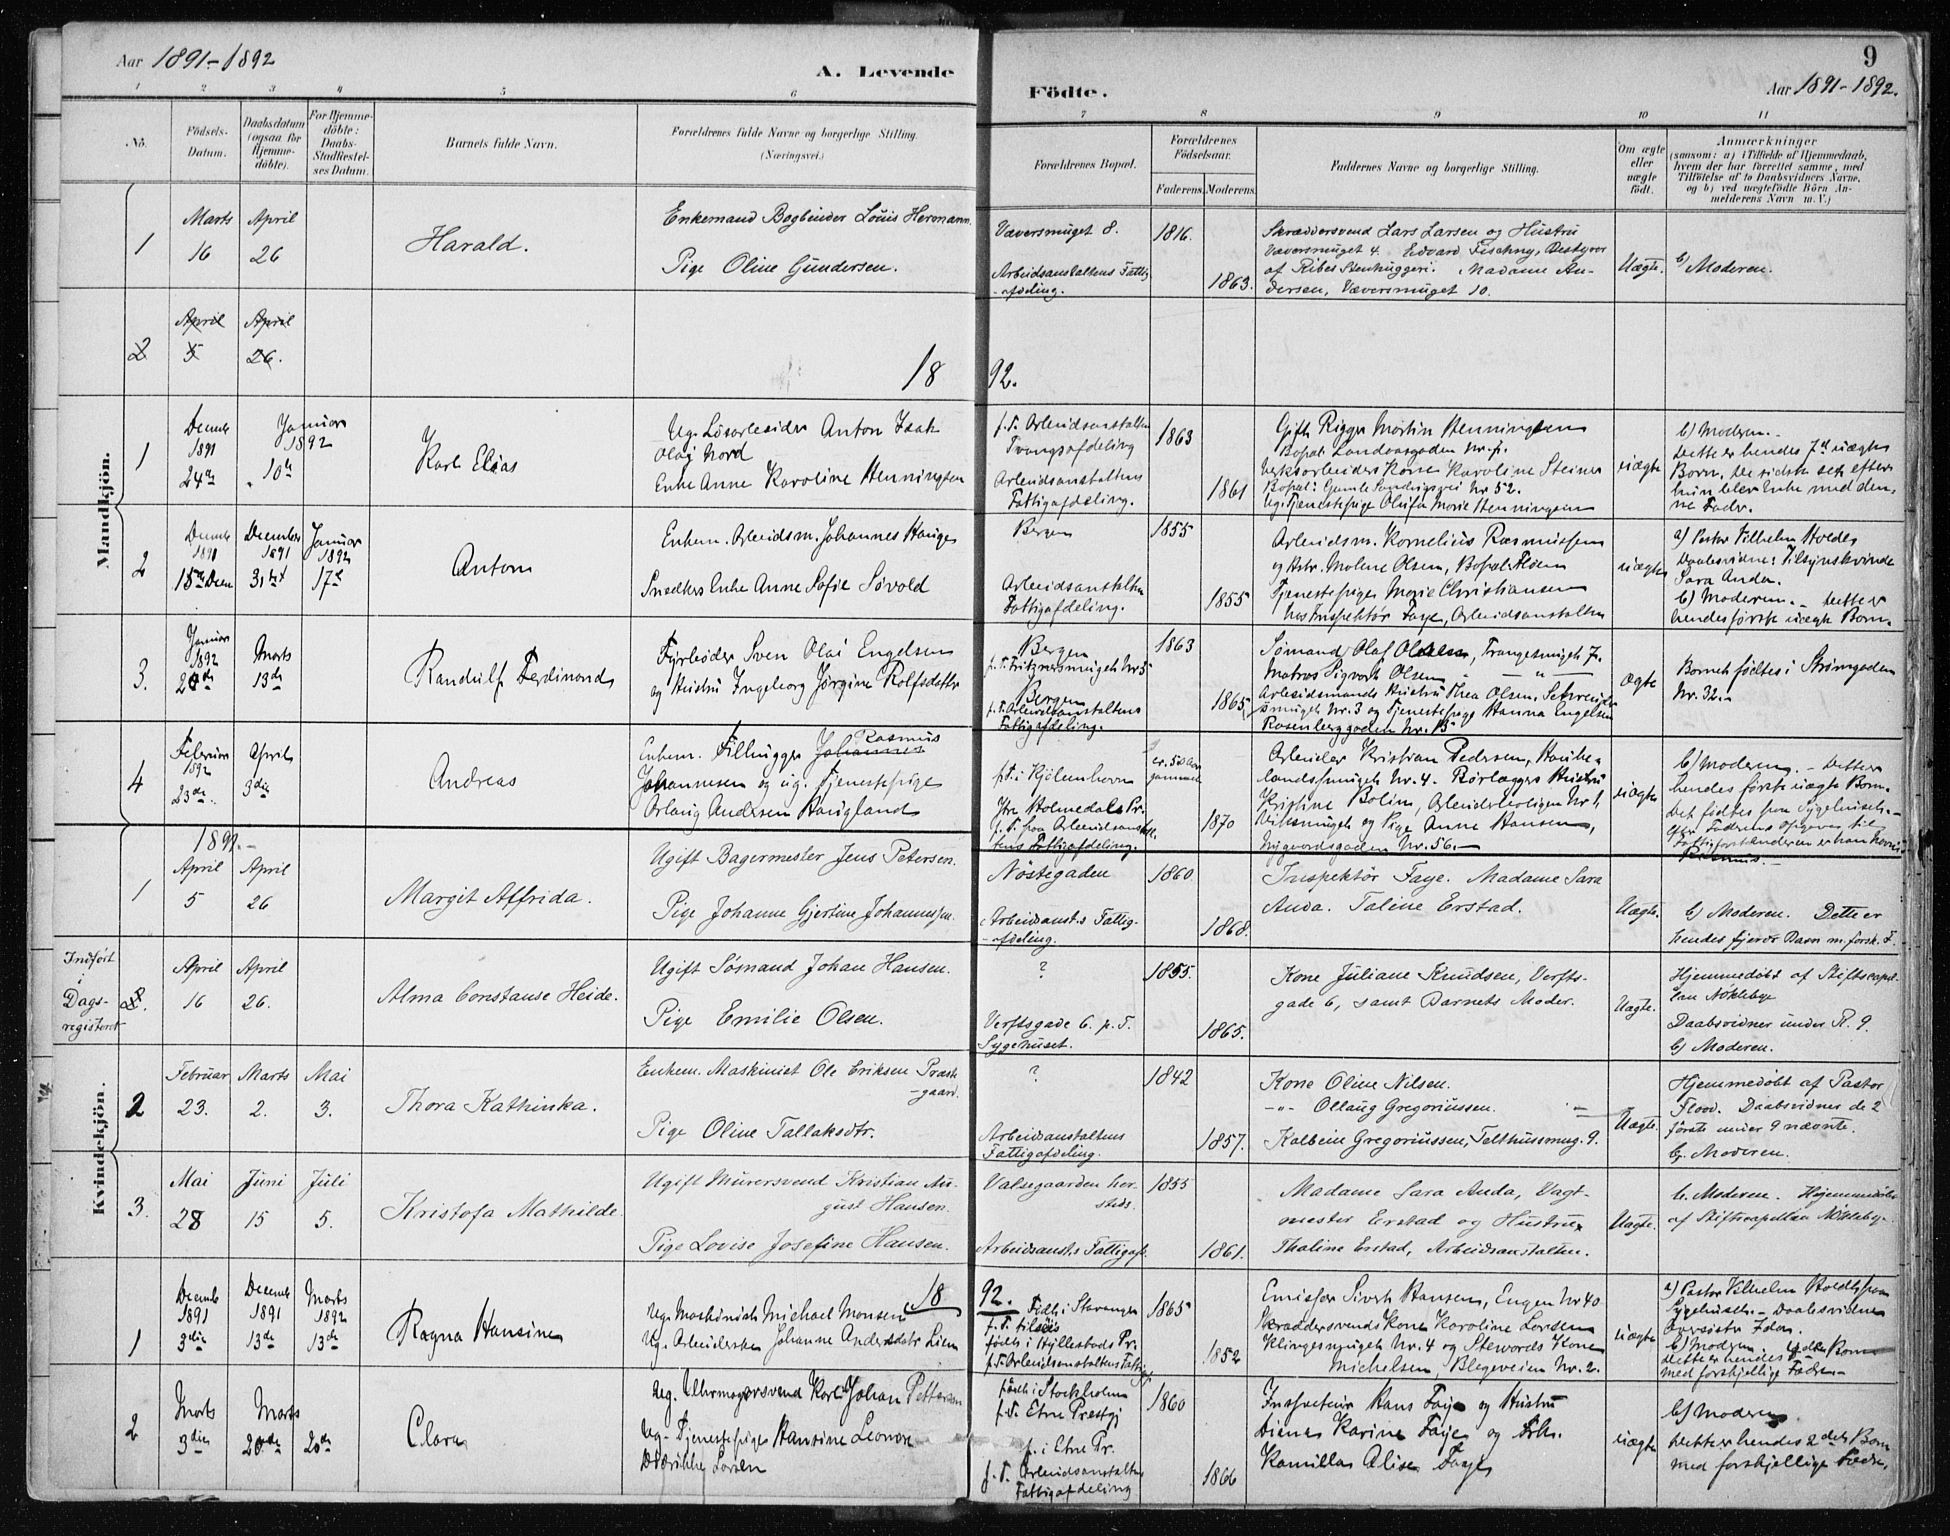 Aar 1891-1892
A. Levende
Födte.
9
Aar 1891-1892.
1 2 3 4 5 6 7 8 9 10 11
No.
Födsels-
Datum.
Daabsdatum
(ogsaa for
Hjemme-
döbte).
For Hjemme-
döbte:
Daabs-
Stadfæstel-
ses Datum.
Barnets fulde Navn.
Forældrenes fulde Navne og borgerlige Stilling.
(Næringsvei.)
Forældrenes Bopæl.
Forældrenes
Födselsaar.
Faderens. Moderens.
Faddernes Navne og borgerlige Stilling.
Om ægte
eller
uægte
födt.
Anmærkninger
(saasom: a) i Tilfælde af Hjemmedaab,
hvem der har forrettet samme, med
Tilföielse af to Daabsvidners Navne,
og b) ved uægtefödte Börn An-
melderens Navn m. V.)
Mandkjön.
1
Marts
16
April
26
Harald.
Enkemand Bogbinder Louis Hermann.
Pige Oline Gundersen.
Væversmuget 8.
Arbeidsanstaltens Fattig
-afdeling.
1816.
1863.
Skræddersvend Lars Larsen og Hustru
Væversmuget 4. Edvard Fischny, Bestyrer
af Ribes Stenhuggeri. Madame An-
dersen, Væversmuget 10.
Uægte.
b/ Moderen.
2
April
5
April
26.
18 92.
1
Decemb
1891
24de
Januar
1892
10de
Karl Elias
Ug. Løsarbeider Anton Isak
Olai Nord
Enke Anne Karoline Henningsen
p. T. Arbeidsanstalten
Tvangsafdeling
Arbeidsanstaltens
Fattigafdeling.
1863
1861
Gift Rigger Martin Henningsen
Verksarbeiders Kone Karoline Steiner
Bopæl: Gamle Sandvigsvei Nr 52.
Ug. Tjenestepige Olufa Marie Henningsen
uægte
b) Moderen.
Dette er hendes 7de uægte
Born, de sidste sex efter
hun blev Enke med den-
ne Fader.
2
Decemb
1891
15de Decem
December
1891
31te
Januar
1892
17de
Anton
Enkem. Arbeidsm. Johannes Hauge
Snedkers Enke Anne Sofie Søvold
Bergen
Arbeidsanstalten
Fattigafdeling.
1855
1855
Arbeidsm. Kornelius Rasmussen
og Hstr. Malene Olsen, Bopæl:
Tjenestepige Marie Christiansen
hos Inspektør Faye, Arbeidsanstalten
uægte
a) Pastor Vilhelm Holdt
Daabsvidne: Tilsynskvinde
Sara Anda.
b) Moderen. - Dette er
hendes første uægte Born.
3.
Januar
1892
20de
Marts
13de
Randulf Ferdinand
Fyrbøder Sven Olai Engelsen
og Hustru Ingeborg Jørgine Rolfsdatter
Bergen
p. T. Fritznersmuget Nr 5
Bergen
p. T. Arbeidsanstaltens
Fattigafdeling.
1863
1865
Sømand Olaf Olsen, Trangesmuget 7.
Matros Sigvart Olsen - " -
Arbeidsmands Hustru Thea Olsen,
smuget Nr. 3 og Tjenestepige Hanna Engelsen
Rosenberggaden Nr. 13
ægte
Barnet fødtes i Strømgaden
Nr. 32.
4
Februar
1892
23de
April
3die
Andreas
Rasmus
Enkem. Filhugger Johannes
Johannesen og ug. Tjenestepige
Andersen Haugland
p. T. i Kjøbenhavn
Ytre Holmedals Pr.
p. T. paa Arbeidsanstal-
tens Fattigafdeling.
gammel
1870
Arbeider Kristian Pedersen, Hauke-
landsmuget Nr. 4. Rørlæggers Hustru
Kristine Bolin, Arbeiderboligen Nr. 1,
Viksmuget og Pige Anne Hansen,
Nygaardsgaden Nr. 56.
uægte
b/ Moderen. - Dette er
hendes første uægte Born.
Det fødtes paa Sygehuset. -
Rasmus. -
Kvindekjön.
1892.-
1
April
5
April
26
Margit Affrida.
Ugift Bagermester Jens Petersen.
Pige Johanne Gjertine Johannessen.
Nöstegaden
Arbeidsanst.s Fattig-
-afdeling.
1860.
1868.
Inspektör Faye. Madame Sara
Anda. Taline Erstad.
Uægte.
b/ Moderen. Dette er
hendes fjerde Barn m. forsk. F.
Indfört
i
Dags-
registeret
2.
April
16
April
26.
Alma Constanse Heide.
Ugift Sømand Johan Hansen.
Pige Emilie Olsen.
?
Verftsgade 6. p. T.
Sygehuset.
1855.
1865.
Kone Juliane Knudsen, Verfts-
gade 6, samt Barnets Moder.
Uægte.
Hjemmedöbt af Stiftscapel-
lan Nökleby
Daabsvidner under R. 9.
b/ Moderen.
2
Februar
23.
Marts
2.
Mai
3.
Thora Kathinka.
Enkem. Maskinist Ole Eriksen Præst-
-gaard.
Pige Oline Tallaksdtr.
?
Arbeidsanstaltens
Fattigafdeling.
1842
1857.
Kone Oline Nilsen.
-"- Ollaug Gregoriussen.
Kalbeine Gregoriussen, Telthussmug. 9.
Uægte.
Hjemmedöbt af Pastor
Flood. Daabsvidner de 2
förste under 9 nævnte.
b. Moderen.
3.
Mai
28
Juni
15
Juli
5.
Kristofa Mathilde.
Ugift Murersvend Kristian Au-
gust Hansen.
Pige Lovise Josefine Hansen.
Valsegaarden her-
steds.
Arbeidsanst.s Fattigaf.
1855
1861.
Madame Sara Anda, Vagt-
mester Erstad og Hustru
Thaline Erstad, Arbeidsanstalten.
Uægte.
b. Moderen. Hjemmedöbt
af Stiftscapellan Nökleby.
18 92.
1
Decemb
1891
3die
December
1891
13de
Marts
1892
13de
Ragna Hansine
Ug. Maskinist Michael Monsen
Ug. Arbeiderske Johanne Andersdatr Lien
Født i Stavanger
p. T. tilsøis
født i Hyllestads Pr.
p. T. Arbeidsanstaltens Fattig
1865
1852
Emissær Sivert Hansen, Engen Nr 40
Skræddersvends Kone Karoline Larsen
Klingesmuget Nr. 4 og Stewards Kone
Michelsen, Blegeveien Nr. 2.
uægte
a) Pastor Vilhelm Holdt paa
Sygehuset. - Daabsvidne
b/ Moderen.
med forskjellige Fædre
2
Marts
3die
Marts
20de
20de
Clara
Ug. Uhrmagersvend Karl Johan Pettersen
Ug. Tjenestepige Hansine Leonore
Larsen
født i Stockholm
p. T. Etne Prestgj
f. i Etne Pr.
p. T. Arbeidsanstaltens
Fattigafdeling
1860
1866
Inspekteur Hans Faye og Hustru
Karine Faye og Frk.
Kamilla Alise Faye
uægte
b/ Moderen
Dette er hendes 2det Born
med forskjellige Fædre.